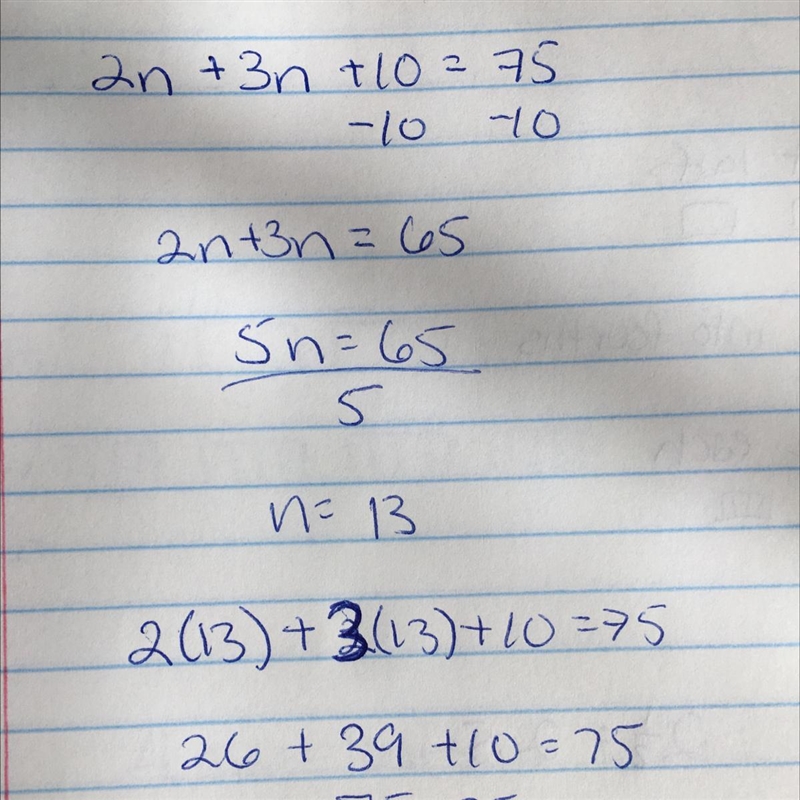 2n + 3n + 10 = 75
-10 -10
2n+3n = 65
5n = 65
5
n = 13
2(13) + 3(13) + 10 = 75
26 + 39 + 10 = 75